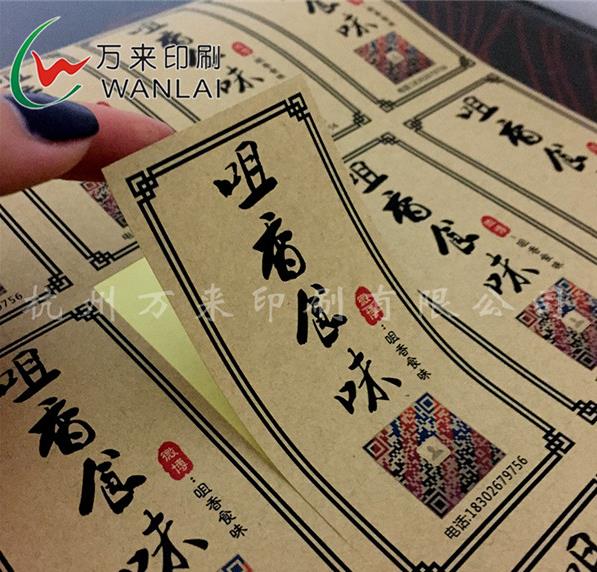 万来印刷
WANLAI
咀香食味
微博:咀香食味
电话:18302679756
杭州万来印刷有限公司
咀香食味
微博:咀香食味
咀香食味
微博:咀香食味
咀香食
味